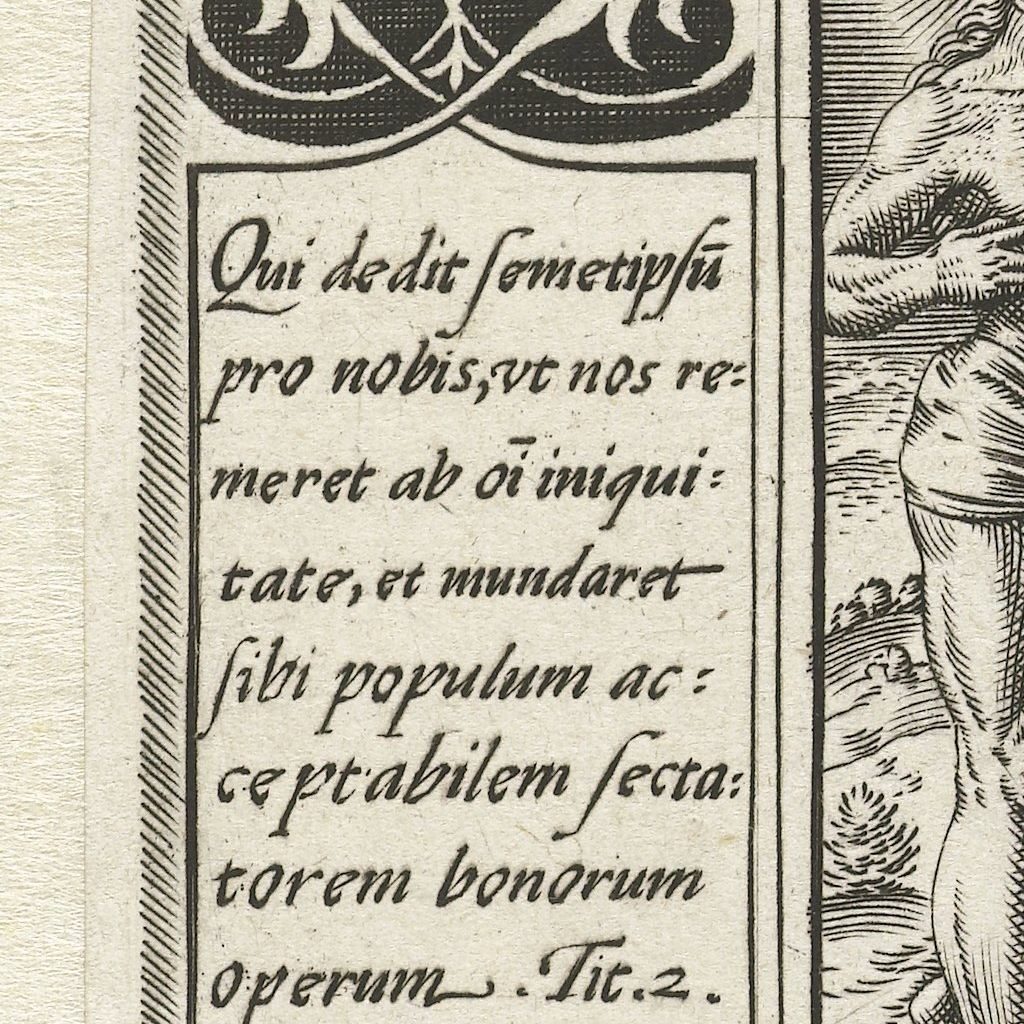 Qui dedit ſemetipſū
pro nobis, vt nos re:
meret ab oī iniqui:
tate, et mundaret
ſibi populum ac:
ceptabilem ſecta:
torem bonorum
operum. Tit. 2.